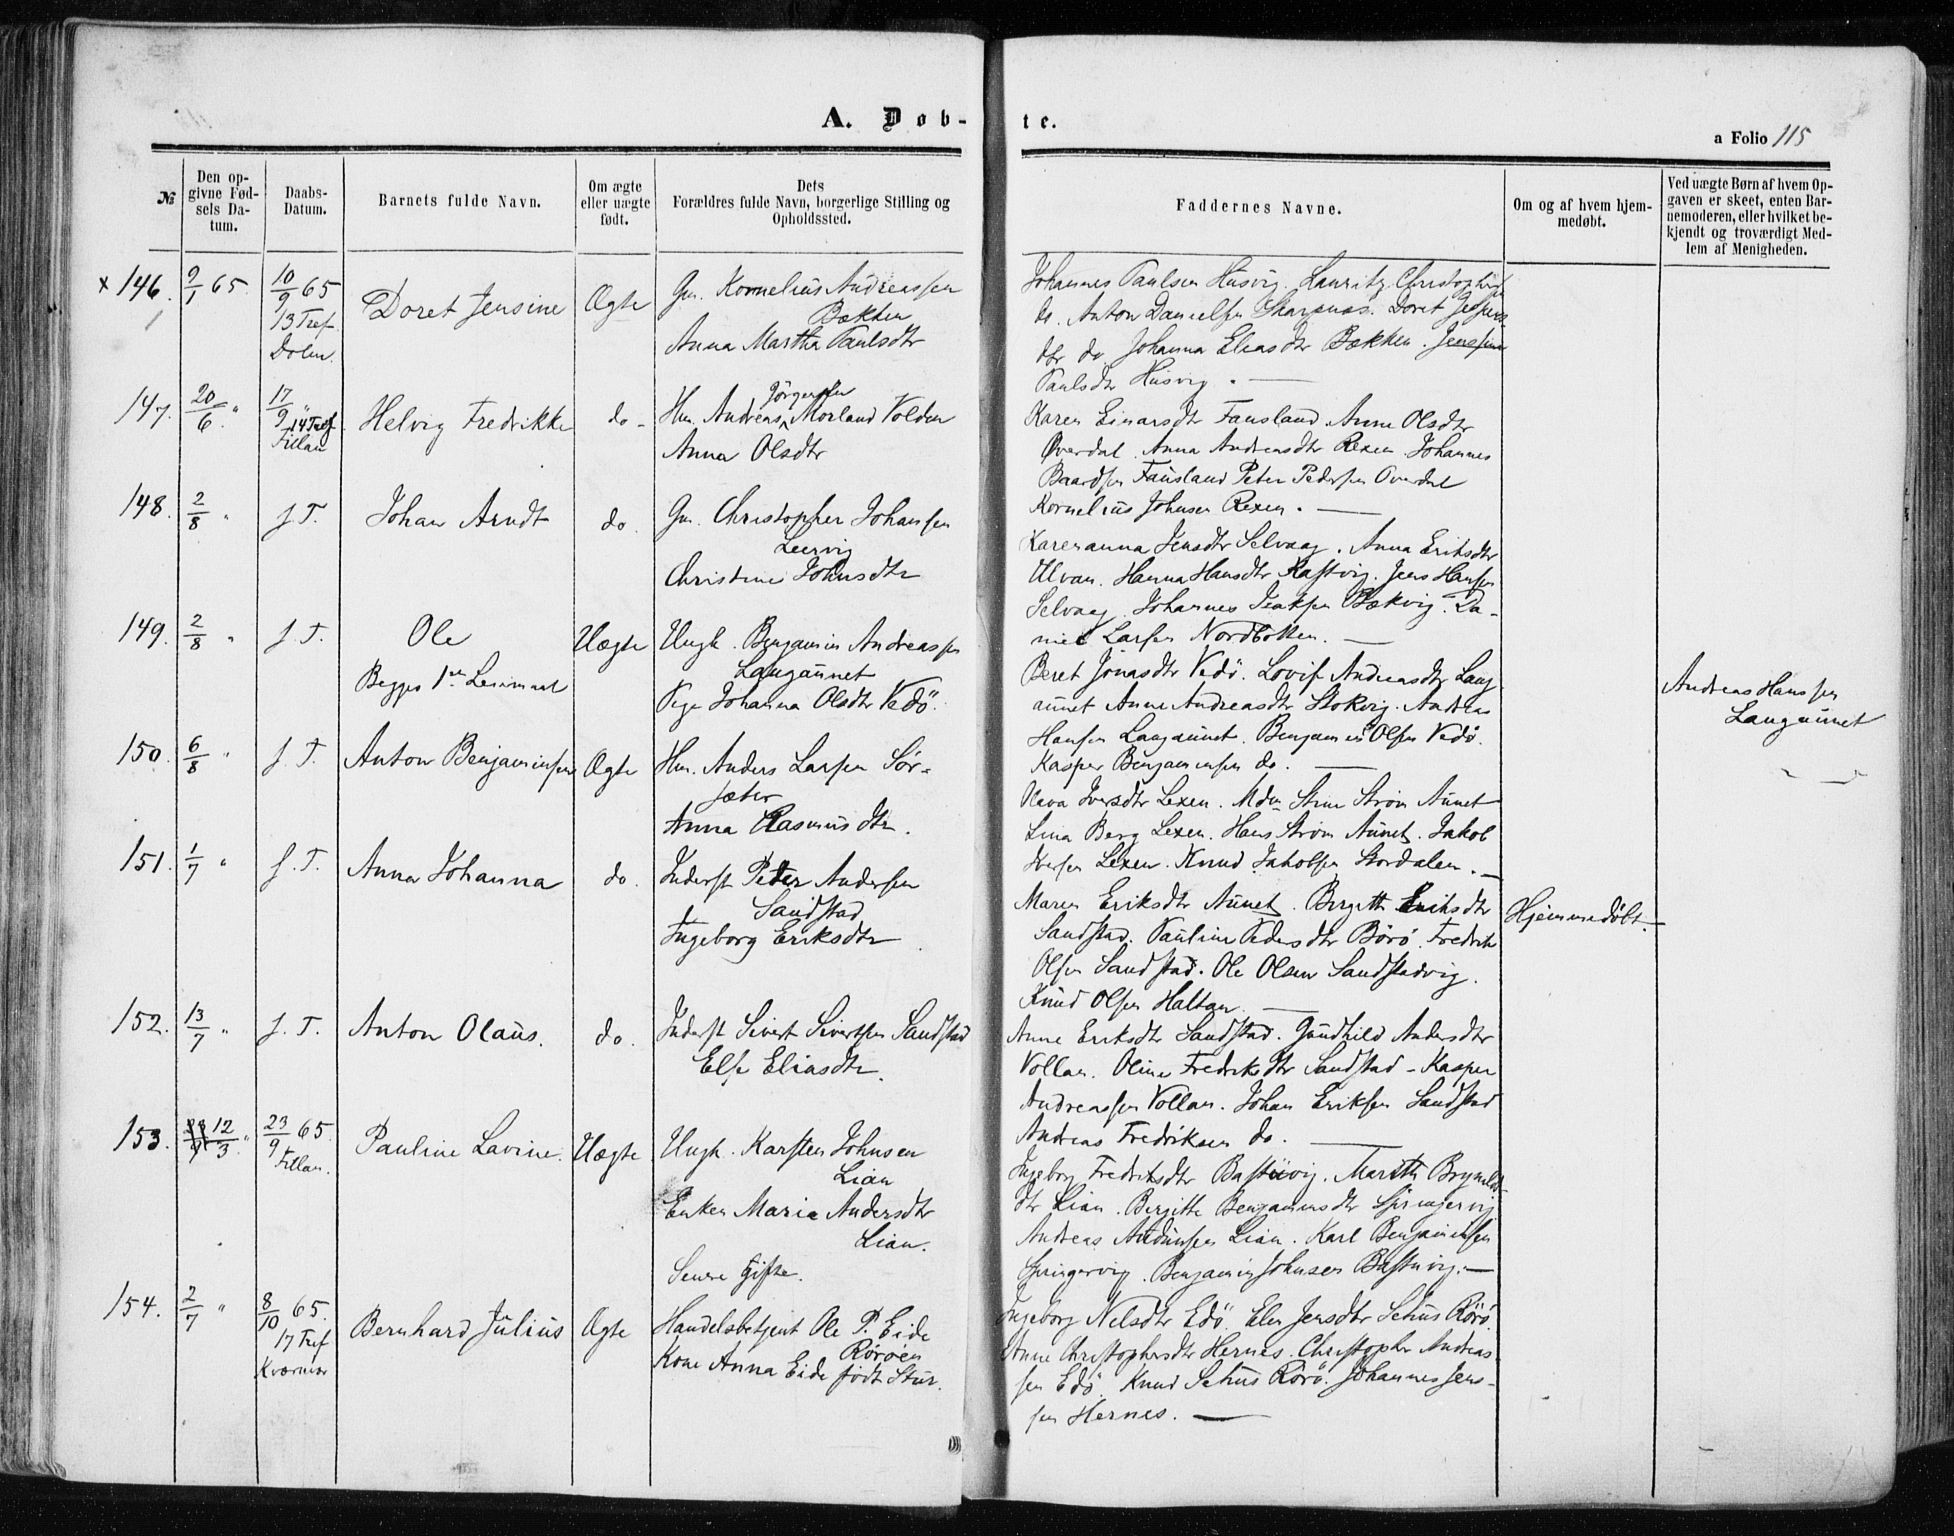 A. Døb-
te.
a Folio 115
№
Den op-
givne Fød-
sels Da-
tum.
Daabs-
Datum.
Barnets fulde Navn.
Om ægte
eller uægte
født.
Dets
Forældres fulde Navn, borgerlige Stilling og
Opholdssted.
Faddernes Navne.
Om og af hvem hjem-
medøbt.
Ved uægte Børn af hvem Op-
gaven er skeet, enten Bar-
nemoderen, eller hvilket be-
kjendt og troværdigt Med-
lem af Menigheden.
x 146. 9/1 65. 10/9 65
13 Tref
Dolm.
Doret Jensine
Ægte
Gm. Kornelius Andreassen
Bækken
Anna Martha Paulsdtr
Johannes Paulsen Husvig. Lauritz Christophers
do. Anton Danielsen Skarsnæs. Doret Jespers
dtr do. Johanna Eliasdtr Bækken. Jensine
Paulsdtr Husvig. —
147. 20/6 " 17/9 "
14 Tref
Fillan
Helvig Fredrikke
do-
Jörgensen
Hm. Andreas Morland Volden
Anna Olsdtr
Karen Einarsdtr Fausland. Anne Olsdtr
Overdal. Anna Andreasdtr Rexen. Johannes
Baardsen Fausland Peter Pedersen Overdal
Kornelius Johnsen Rexen. —
148. 2/8 " J. T.
Johan Arndt
do.
Gm. Christopher Johansen
Leervig
Christine Johnsdtr
Karenanna Jensdtr Selvaag. Anna Eriksdtr
Ulvan. Hanna Hansdtr Kastvig. Jens Hansen
Selvaag. Johannes Isaksen Bækvig. Da-
niel Larsen Nordbotten. —
149. 2/8 " J. T.
Ole
Begges 1ste Leiermaal
Uægte
Ungk. Benjamin Andreassen
Langaunet
Pige Johanna Olsdtr Vedö.
Beret Jonasdtr Vedö. Lovise Andreasdtr Lang
aunet Anne Andreasdtr Stokvig. Andreas
Hansen Langaunet. Benjamin Olsen Vedö.
Kasper Benjaminsen do. —
Andreas Hansen
Langaunet
150. 6/8 " J. T.
Anton Benjaminsen
Ægte
Hm. Anders Larsen Sör-
sæter
Anna Rasmusdtr.
Olava Iversdtr Lexen. Mdm Stine Ström Aunet
Lina Berg Lexen. Hans Ström Aunet. Jakob
Iversen Lexen. Knud Jakobsen Stordalen. —
151. 1/7 " J. T.
Anna Johanna
do.
Inderst Peter Andersen
Sandstad
Ingeborg Eriksdtr
Maren Eriksdtr Aunet. Birgitte Eriksdtr
Sandstad. Pauline Pedersdtr Börö. Fredrik
Olsen Sandstad. Ole Olsen Sandstadvig.
Knud Olsen Haltan. —
Hjemmedöbt. —
152. 13/7 " J. T.
Anton Olaus.
do.
Inderst Sivert Sivertsen Sandstad
Else Eliasdtr.
Anne Eriksdtr Sandstad. Gundhild Andersdtr
Vollan. Oline Fredriksdtr Sandstad - Kasper
Andreassen Vollan. Johan Eriksen Sandstad
Andreas Fredriksen do. —
153. 12/3 " 23/9 65.
Fillan.
Pauline Lavine.
Uægte
Ungk. Karsten Johnsen
Lian
Enken Maria Andersdtr
Lian.
Senere Gifte.
Ingeborg Fredriksdtr Bastuvig. Marith Brynhilds
dtr Lian. Birgitte Benjaminsdtr Springervig
Andreas Audunsen Lian. Karl Benjaminsen
Springervig. Benjamin Johnsen Bastuvig. —
154. 2/7 " 8/10 65.
17 Tref
Kværnvær
Bernhard Julius
Ægte
Handelsbetjent Ole P. Eide
Röröen
Kone Anna Eide født Stur.
Ingeborg Nelsdtr Edö. Elen Jensdtr Setius Rörö.
Anne Christophersdtr Hernes. Christopher Andreas-
sen Edö. Knud Setius Rörö. Johannes Jens-
sen Hernes. —